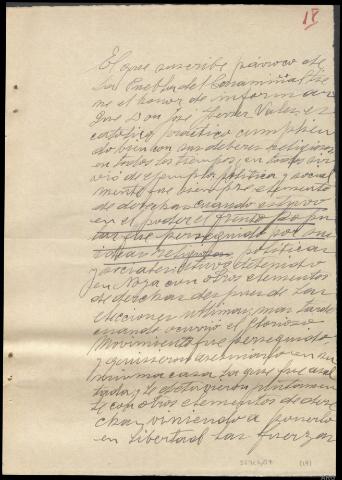 18
El que suscribe párroco de
La Puebla del Caramiñal, tie
ne el honor de informar
Que Don José Ferrer Vales, es
católico práctico cumplien
do bien con sus deberes religiosos
en todos los tiempos, en todos sir
vió de ejemplo, política y social
mente fue siempre elemento
de derechas cuando estuvo
en el poder el Frente Po pu
lar fue perseguido por sus
ideas religiosas políticas
y sociales estuvo detenido
en Noya con otros elementos
de derechas despues de las
elecciones ultimas; mas tarde
cuando ocurrió el Glorioso
Movimiento fue perseguido,
y quisieron asesinarlo en su
misma casa, la que fue asal
tada, y le detuvieron juntamen
te con otros elementos de dere
chas, viniendo a ponerlo
en libertad las fuerzas